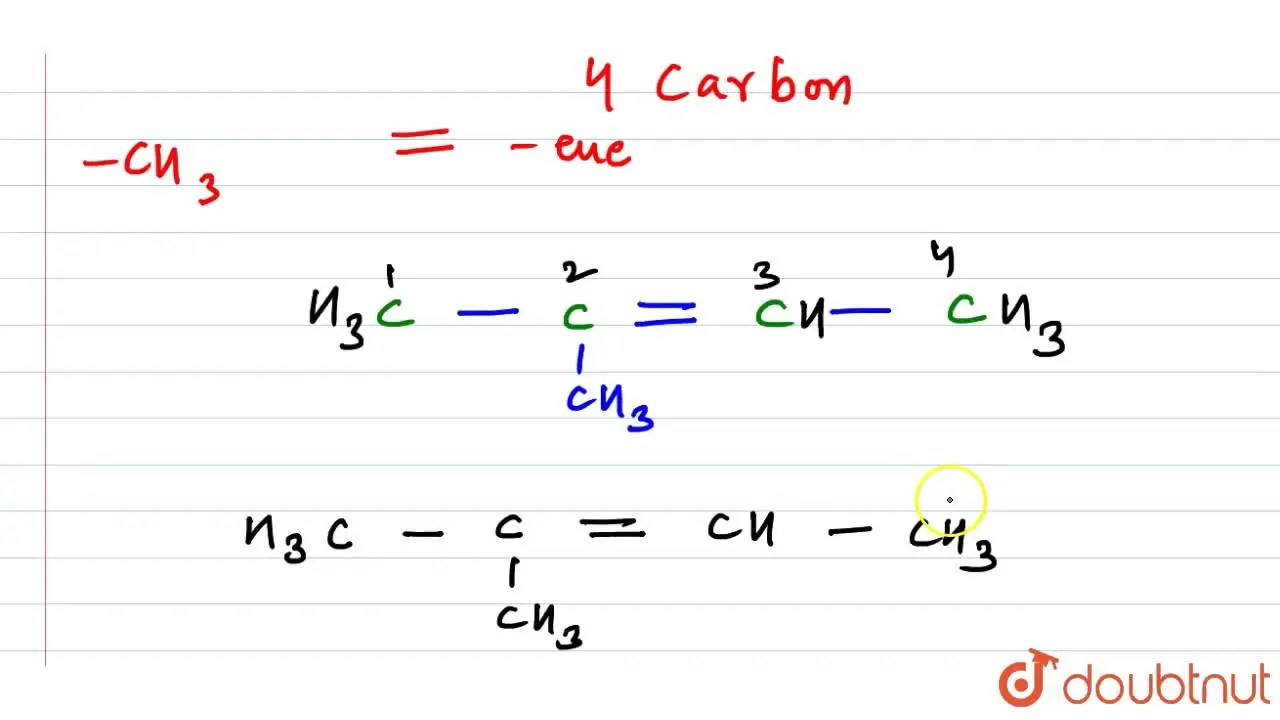 4 Carbon
-CH3 = -ene
1 2 3 4
H3C - C = CH - CH3
|
CH3
H3C - C = CH - CH3
|
CH3
doubtnut